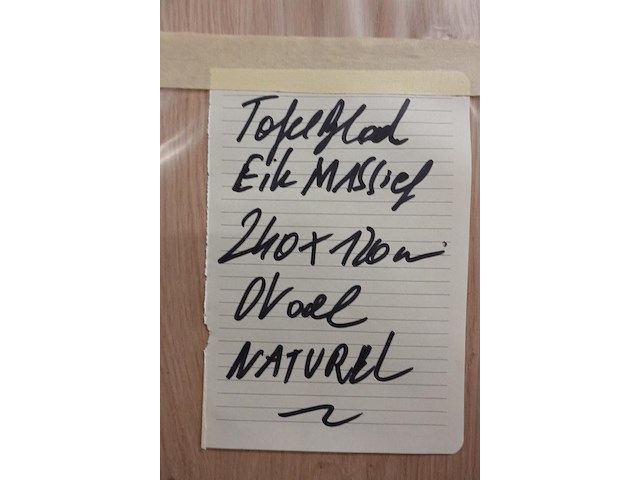 TafelBlad
Eik MASSief
240 x 120 cm
OVaal
NATUREL